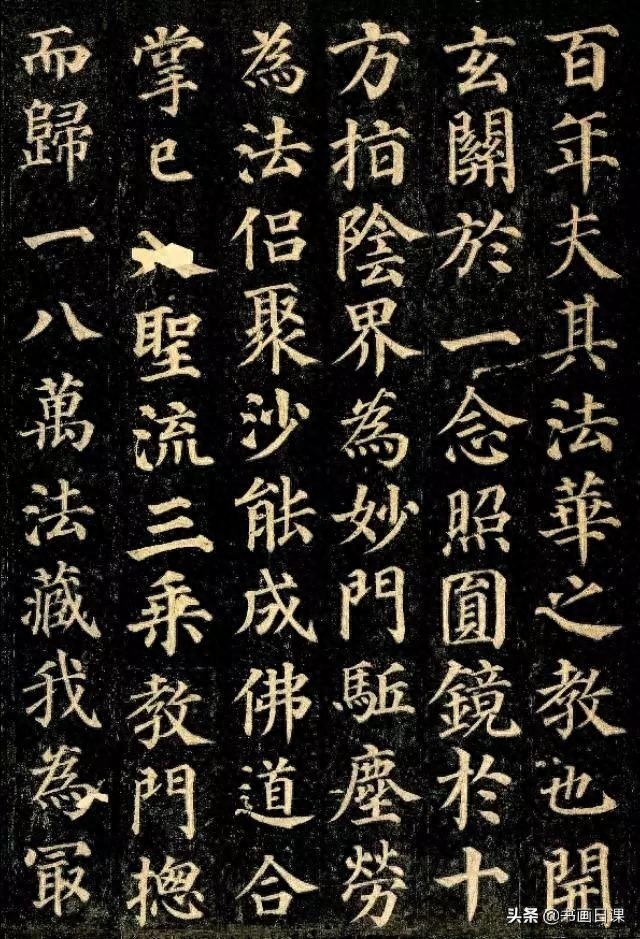 百年夫其法華之教也開
玄關於一念照圓鏡於十
方指陰界為妙門駈塵勞
為法侣聚沙能成佛道合
掌已入聖流三乗教門揔
而歸一八萬法藏我為冣
头条 @书画日课